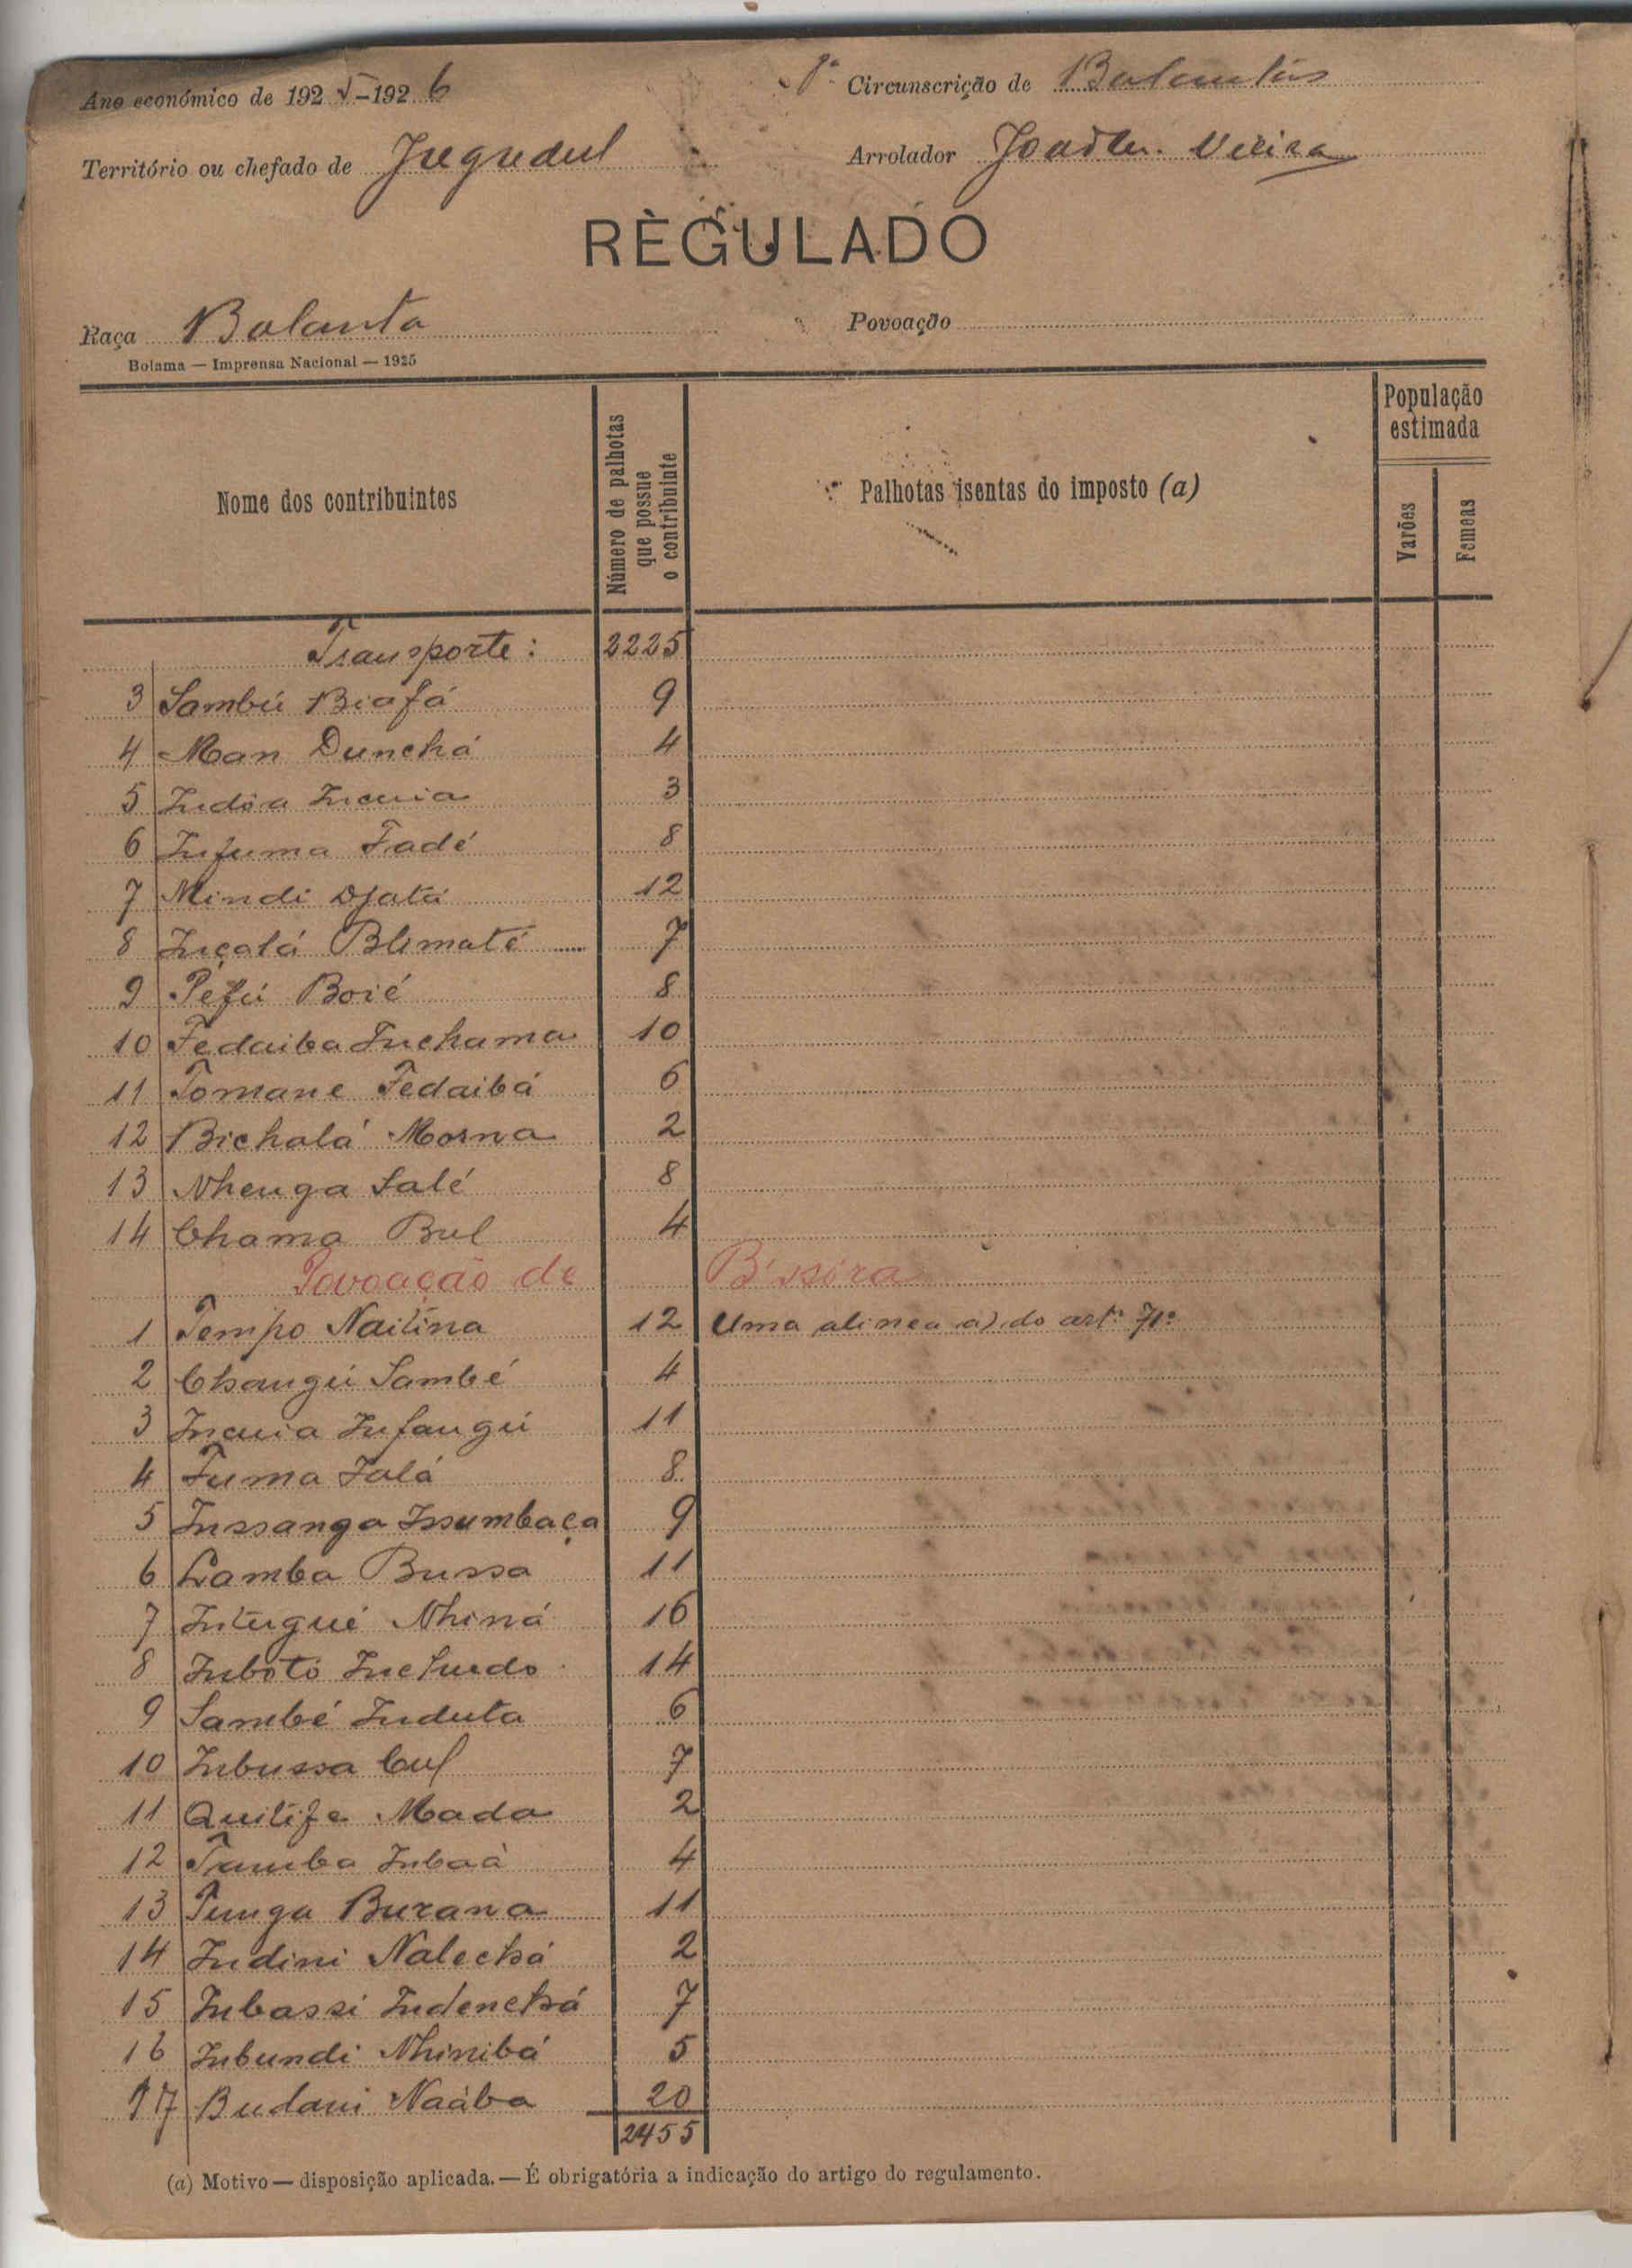 Ano económico de 1925-1926
Circunscrição de Balantas
Território ou chefado de Jugudul
Arrolador Vieira
REGULADO
Raça Balanta
Povoação
Bolama — Imprensa Nacional — 1925
Nome dos contribuintes
Número de palhotas que possue o contribuinte
Palhotas isentas do imposto (a)
População estimada
Varões
Femeas
Transporte: 2225
3 Sambú Biafá 9
4 Man Dunchá 4
5 Indôa Incuia 3
6 Infuma Fadé 8
7 Mindi Djatá 12
8 Inçalá Blimaté 7
9 Péfú Boié 8
10 Fedaiba Inchama 10
11 Tomane Fedaibá 6
12 Bichalá Morna 2
13 Nhenga Salé 8
14 Chama Bul 4
Povoação de
1 Tempo Naitina 12 Uma alinea a) do artº 71º
2 Changú Sambé 4
3 Incuia Infangú 11
4 Fuma Falá 8
5 Inssanga Issumbaça 9
6 Lamba Bussa 11
7 Intugué Nhiná 16
8 Inbotó 14
9 Sambé Induta 6
10 Inbussa Cuf 7
11 Quitife Mada 2
12 Tamba Inbaà 4
13 Tunga Burana 11
14 Indini Nalechá 2
15 Inbassi Indenchá 7
16 Inbundi Nhinibá 5
17 Budani Naàba 20
2455
(a) Motivo — disposição aplicada. — É obrigatória a indicação do artigo do regulamento.